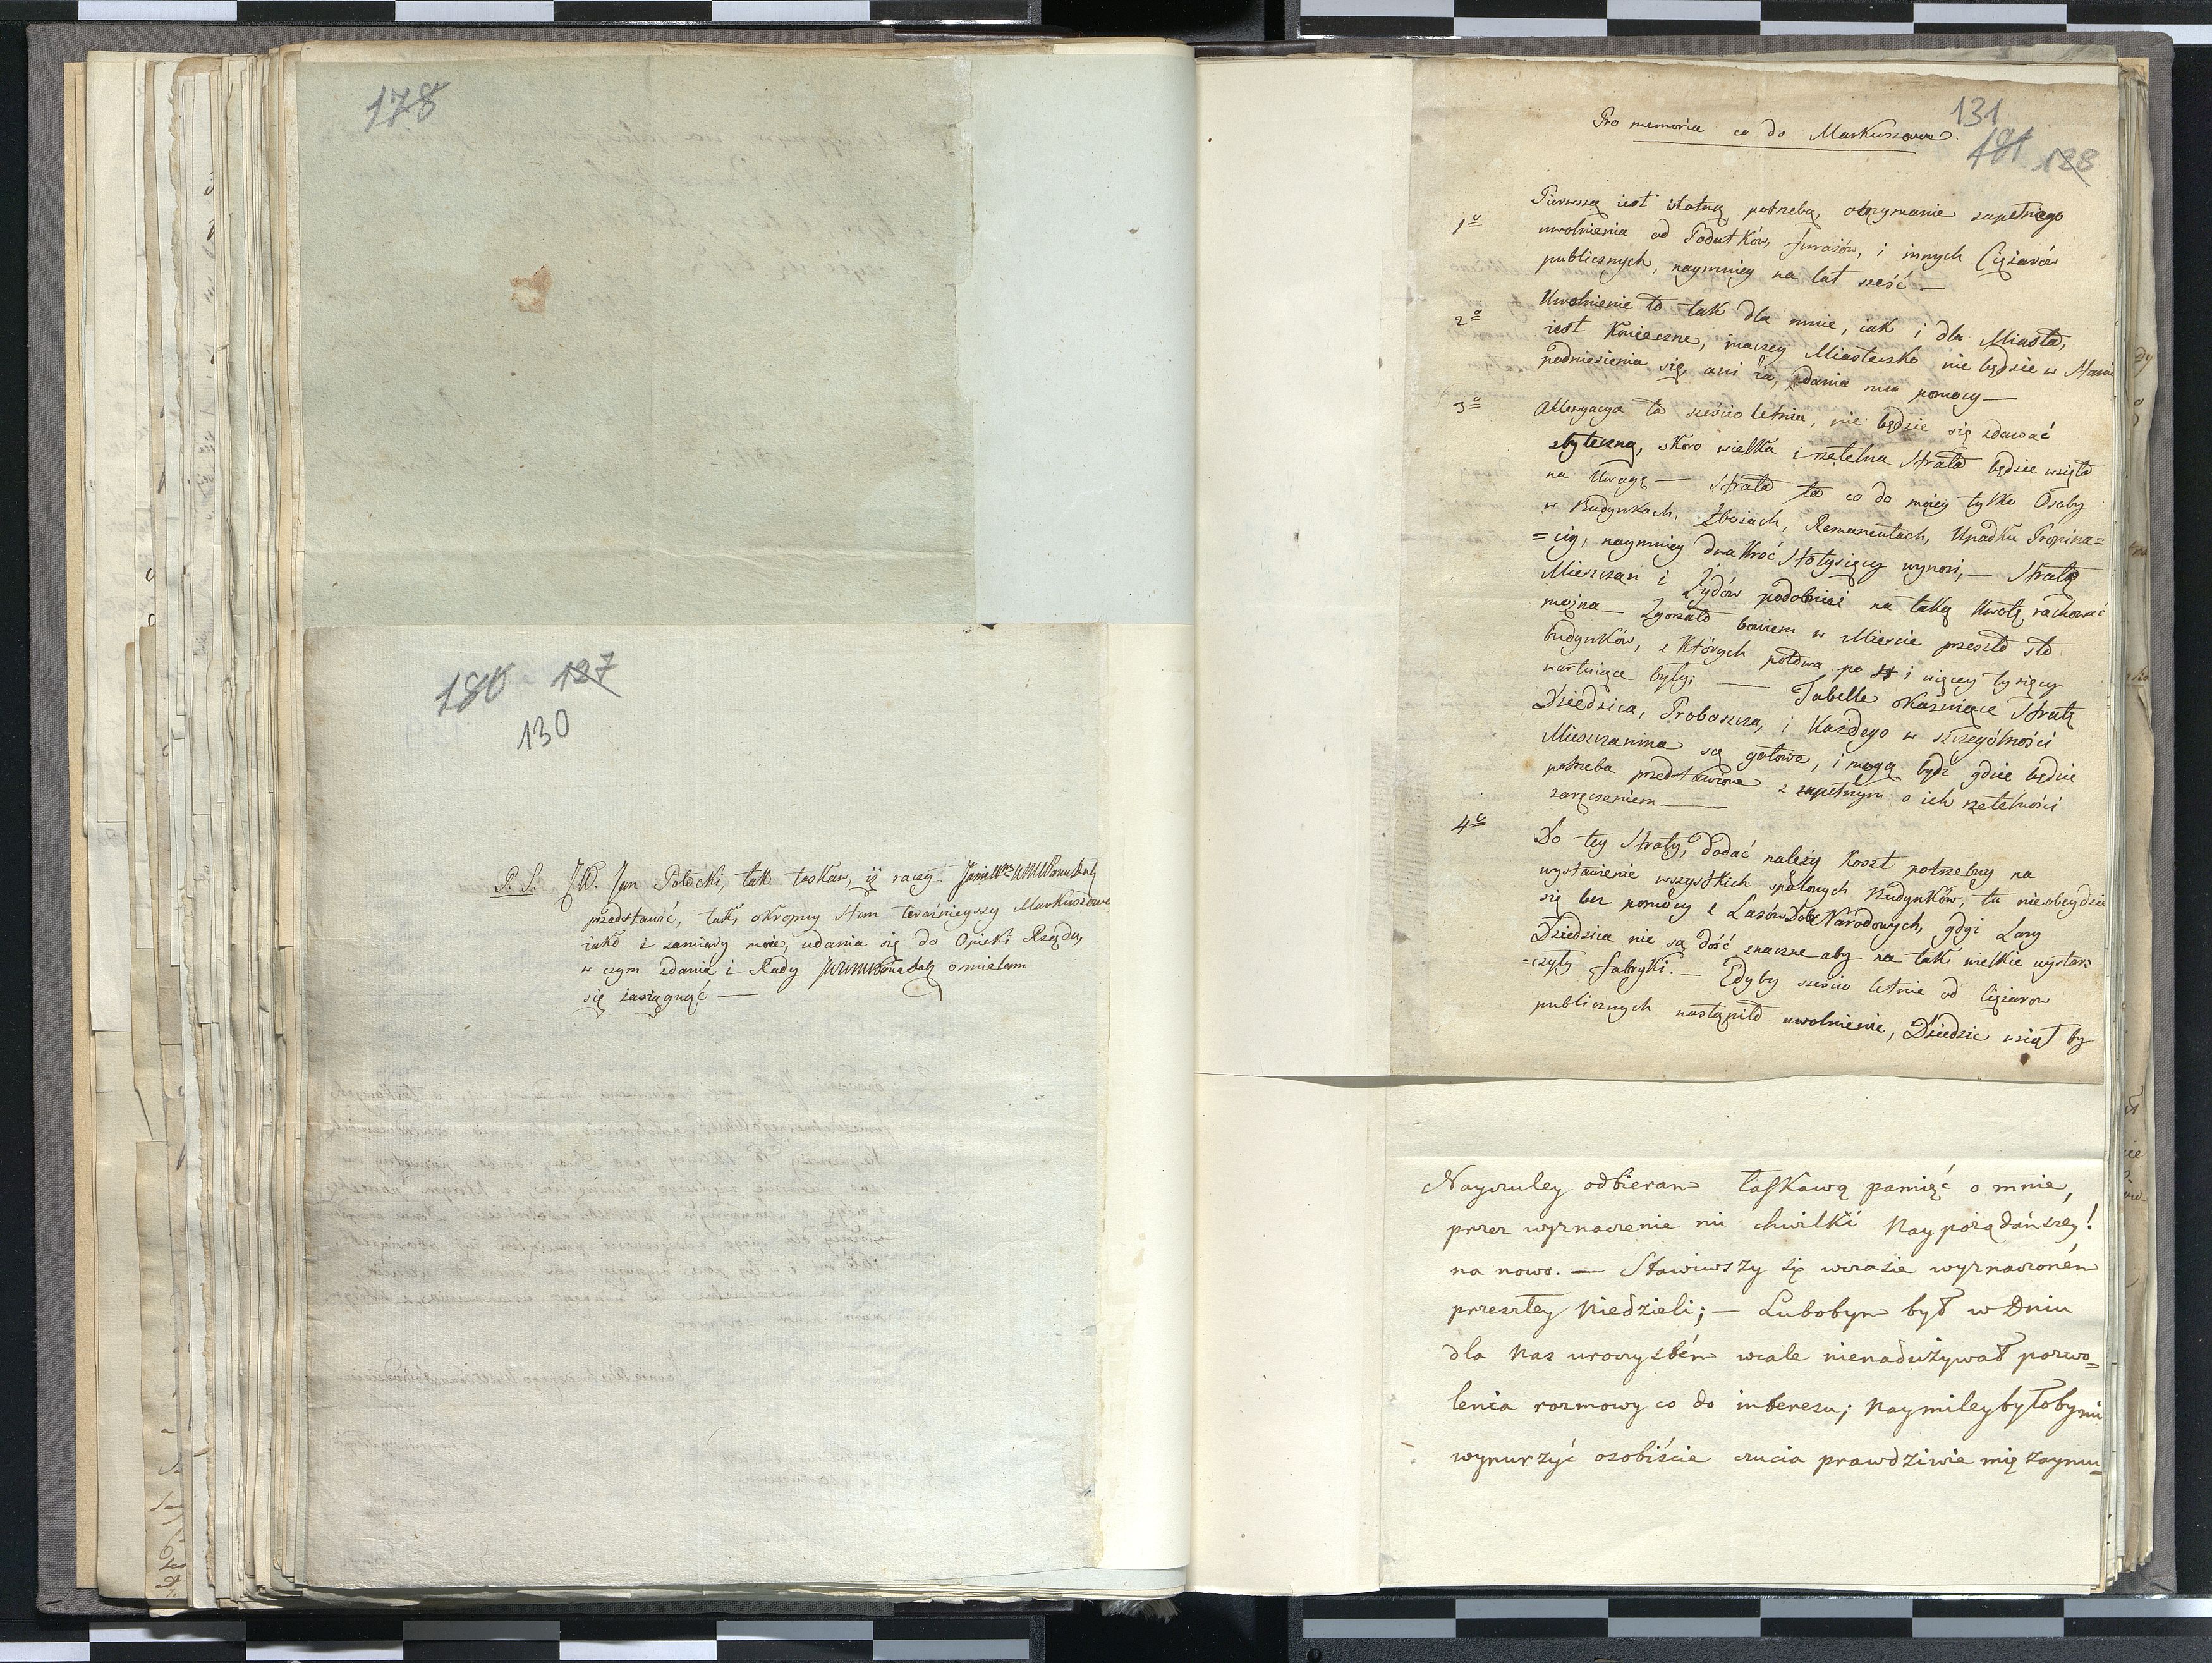 178
180 127
130
P. S. J.W. Jan Potocki, tak łaskaw, iż raczy
przedstawić, tak, okropny stan teraźnieyszy Markuszowa
iako i zamiary moie, udania się do Opieki Rządu,
w czym zdania i Rady omielam
się zasiągnąć —
131
181 128
Pro memoria co do Markuszowa.
1º Pierwszą iest istotną potrzebą, otrzymanie zupełnego
uwolnienia od Podatków, furażów, i innych Ciężarów
publicznych, naymniey na lat sześć —
2º Uwolnienie to tak dla mnie, iak i dla Miasta,
iest konieczne, inaczey Miasteczko nie będzie w stanie
podniesienia się, ani ia, dania mu pomocy —
3º Allewyacya ta sześcio letnia, nie będzie się zdawać
zbyteczną, skoro wielka i rzetelna strata będzie wzięta
na Uwagę — strata ta co do moiey tylko Osoby
w Budynkach, Zbożach, Remanentach, Upadku Propina=
=cyi, naymniey dwa kroć stotysięcy wynosi, — stratę
Mieszczan i Żydów podobnież na taką kwotę rachować
można — Zgorzało bowiem w Mieście przeszło sto
budynków, z których połowa po i więcey tysięcy
wartuiące były; — Tabelle okazuiące stratę
Dziedzica, Proboszcza, i każdego w szczególności
Mieszczanina są gotowe, i mogą bydź gdzie będzie
potrzeba przedstawione z zupełnym o ich rzetelności
zaręczeniem —
4º Do tey straty, dodać należy koszt potrzebny na
wystawienie wszystkich spalonych Budynków, ta nieobeydzie
się bez pomocy z Lasów Dóbr Narodowych, gdyż Lasy
Dziedzica nie są dość znaczne aby na tak wielkie wystar
=czyły fabryki. — Gdyby sześcio letnie od Ciężarow
publicznych nastąpiło uwolnienie, Dziedzic wziął by
Nayczuley odbieram łaskawą pamięć o mnie,
przez wyznaczenie mi chwilki Naypożądańszey!
na nowo. — Stawiwszy się wczasie wyznaczoném
przeszłey Niedzieli; — Lubobym był w Dniu
dla Nas uroczystém wcale nienadużywał pozwo=
lenia rozmowy co do interesu; Naymiley byłoby mi
wynurzyć osobiście czucia prawdziwie mię zaymu=